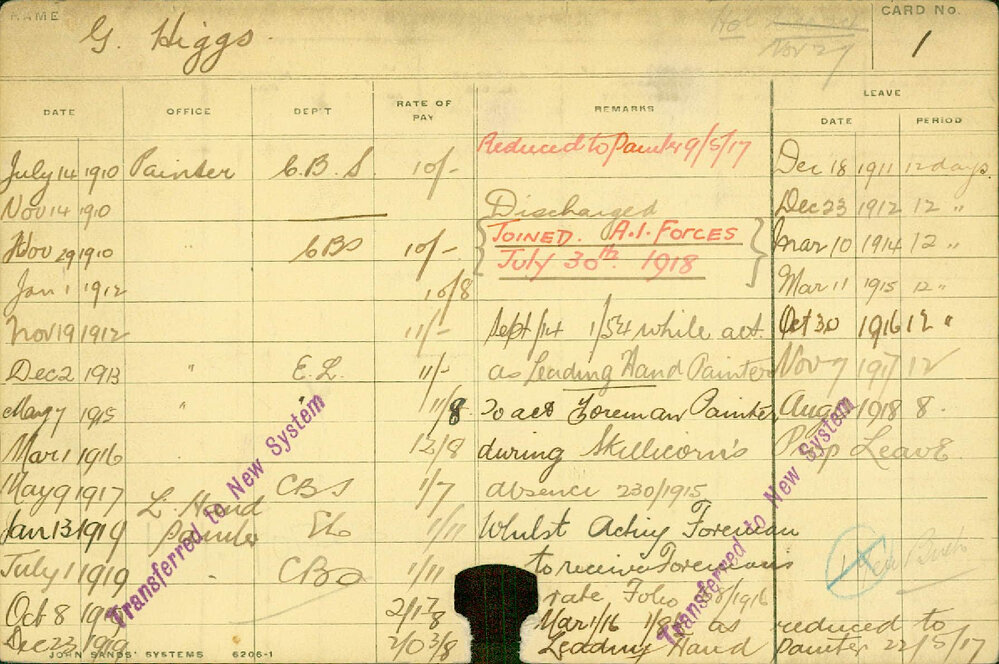 NAME G. Higgs. Nov 27 CARD No. 1
DATE OFFICE DEP'T RATE OF PAY REMARKS LEAVE
DATE PERIOD
Reduced to Painter 9/5/17
July 14 1910 Painter C.B.S. 10/- Dec 18 1911 12 days.
Nov 14 1910 Discharged Dec 23 1912 12 "
Nov 29 1910 " CBS 10/- JOINED. A.I. FORCES Mar 10 1914 12 "
Jan 1 1912 10/8 July 30th. 1918 Mar 11 1915 12 "
Nov 19 1912 11/- Sept/14 1/54 while act. Oct 30 1916 12 "
Dec 2 1913 " E.L. 11/- as Leading Hand Painter Nov 7 1917 12
May 7 1915 " " 11/8 To act Foreman Painter Aug 1918 8.
Mar 1 1916 12/8 during Skillicorn's Prop Leave
May 9 1917 CBS 1/7 absence 230/1915
Jan 13 1919 L. Hand Painter 1/11 Whilst Acting Foreman
July 1 1919 " 1/11 to receive Foremans
Oct 8 rate Folio /1916
Dec 23 1919 2/0 3/8 Mar 1/16 as reduced to
Leading Hand Painter 22/5/17
Transferred to New System
Transferred to New System
JOHN SANDS' SYSTEMS 6206-1